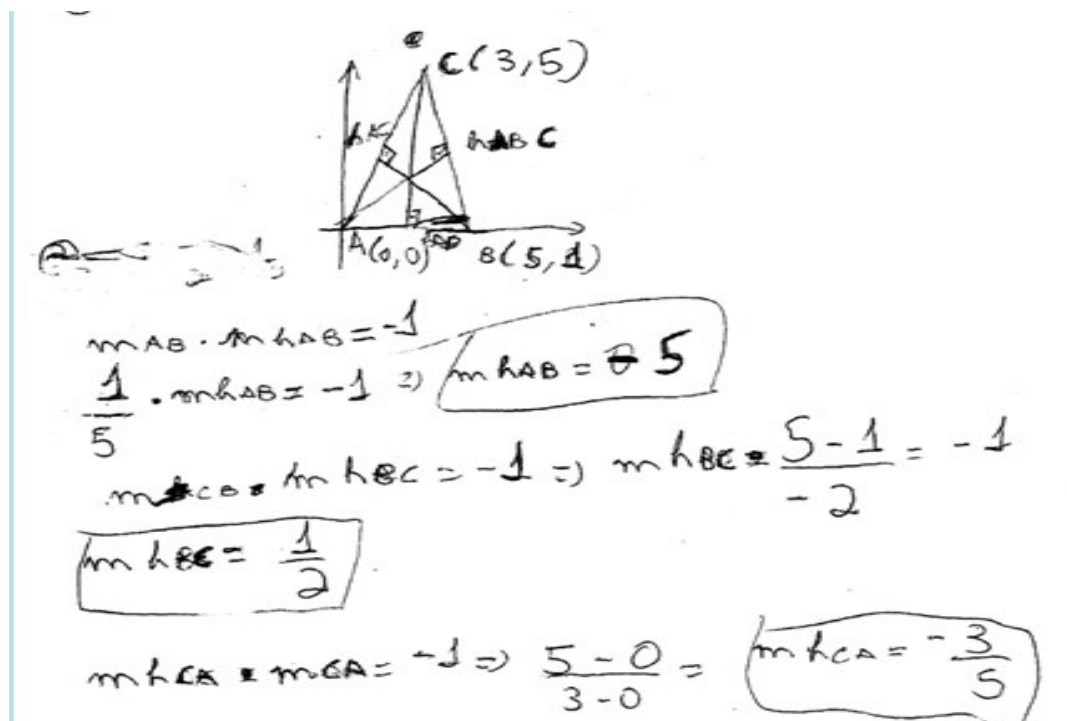 C(3,5)
hAC
hBC
A(0,0)
B(5,1)
mAB · mhAB = -1
1/5 · mhAB = -1 => mhAB = -5
mCB · mhBC = -1 => mhBC · (5-1)/(-2) = -1
mhBC = 1/2
mhCA · mCA = -1 => (5-0)/(3-0) = mhCA = -3/5